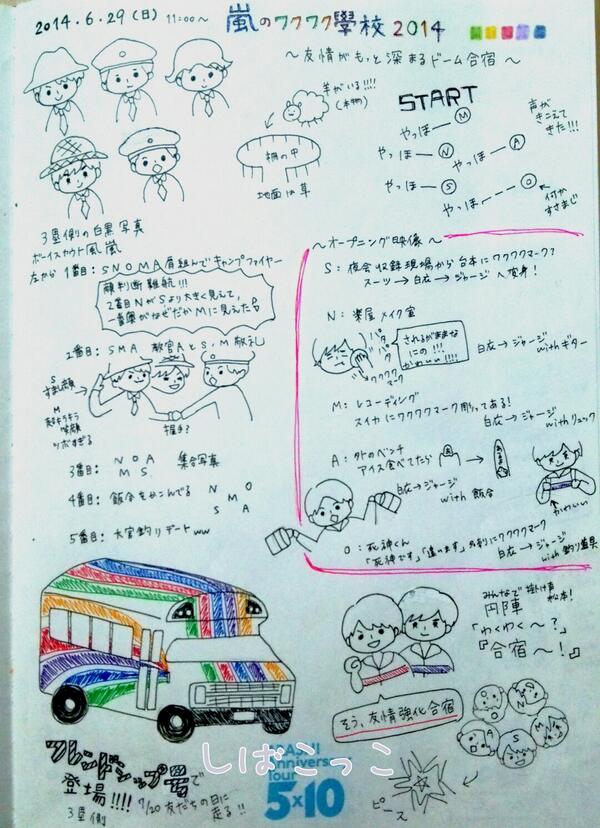 2014.6.29(日) 11:00〜
嵐のワクワク學校2014
〜友情がもっと深まるドーム合宿〜
羊がいる!!!!
(本物)
柵の中
地面は草
START
やっほー M
やっほー A
やっほー N
やっほー S
やっほー O
声が
きこえて
きた!!!
何か
すさまじ
3塁側の白黒写真
ボーイスカウト風嵐
左から 1番目:SNOMA肩組んでキャンプファイヤー
顔判断難航!!!
2番目NがSより大きく見えて、
一番奥がなぜだかMに見えた
2番目:SMA 教官AとS・M敬礼
S
すまし顔
M
超キラキラ
笑顔
ツボすぎる
握手?
3番目: NOA 集合写真
MS
4番目: 飯盒をかこんでる N O
M
S A
5番目: 大宮釣りデートww
〜オープニング映像〜
S:夜会収録現場から台本にワクワクマーク?
スーツ→白衣→ジャージへ変身!
N:楽屋メイク室
パタ
パタ
ワクワク
マーク
されるがままな
にの!!!
かわいい!!!!
白衣→ジャージ
withギター
M:レコーディング
スイカにワクワクマーク彫ってある!
白衣→ジャージ
withリュック
A:外のベンチ
アイス食べてたら
白衣→ジャージ
with 飯盒
かわいい
O:死神くん
「死神です」「違います」名刺にワクワクマーク
白衣→ジャージ
with 釣り道具
みんなで 掛け声
松本!
円陣
「わくわく〜?」
『合宿〜!』
そう、友情強化合宿
フレンドシップ号で
登場!!!!
3塁側
7/20 友だちの日に
走る!!
しばこっこ
Tour
5×10
O
N
A
S
M
ピース